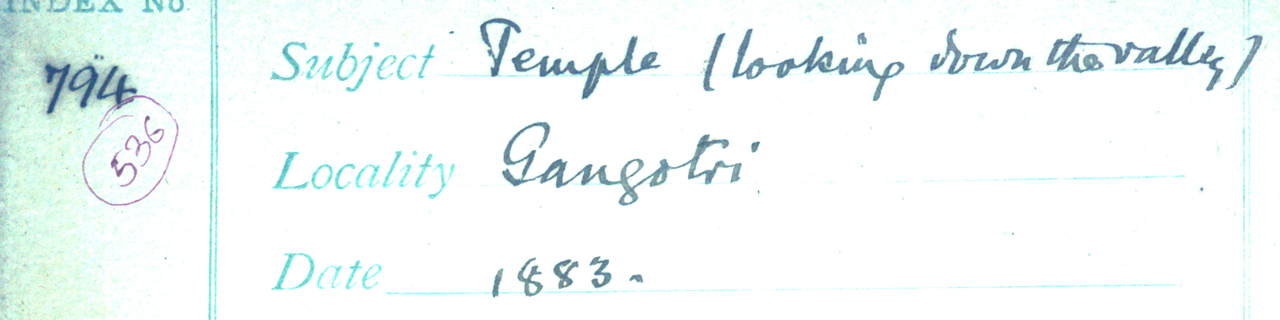 INDEX No
794
536
Subject Temple (looking down the valley)
Locality Gangotri
Date 1883.